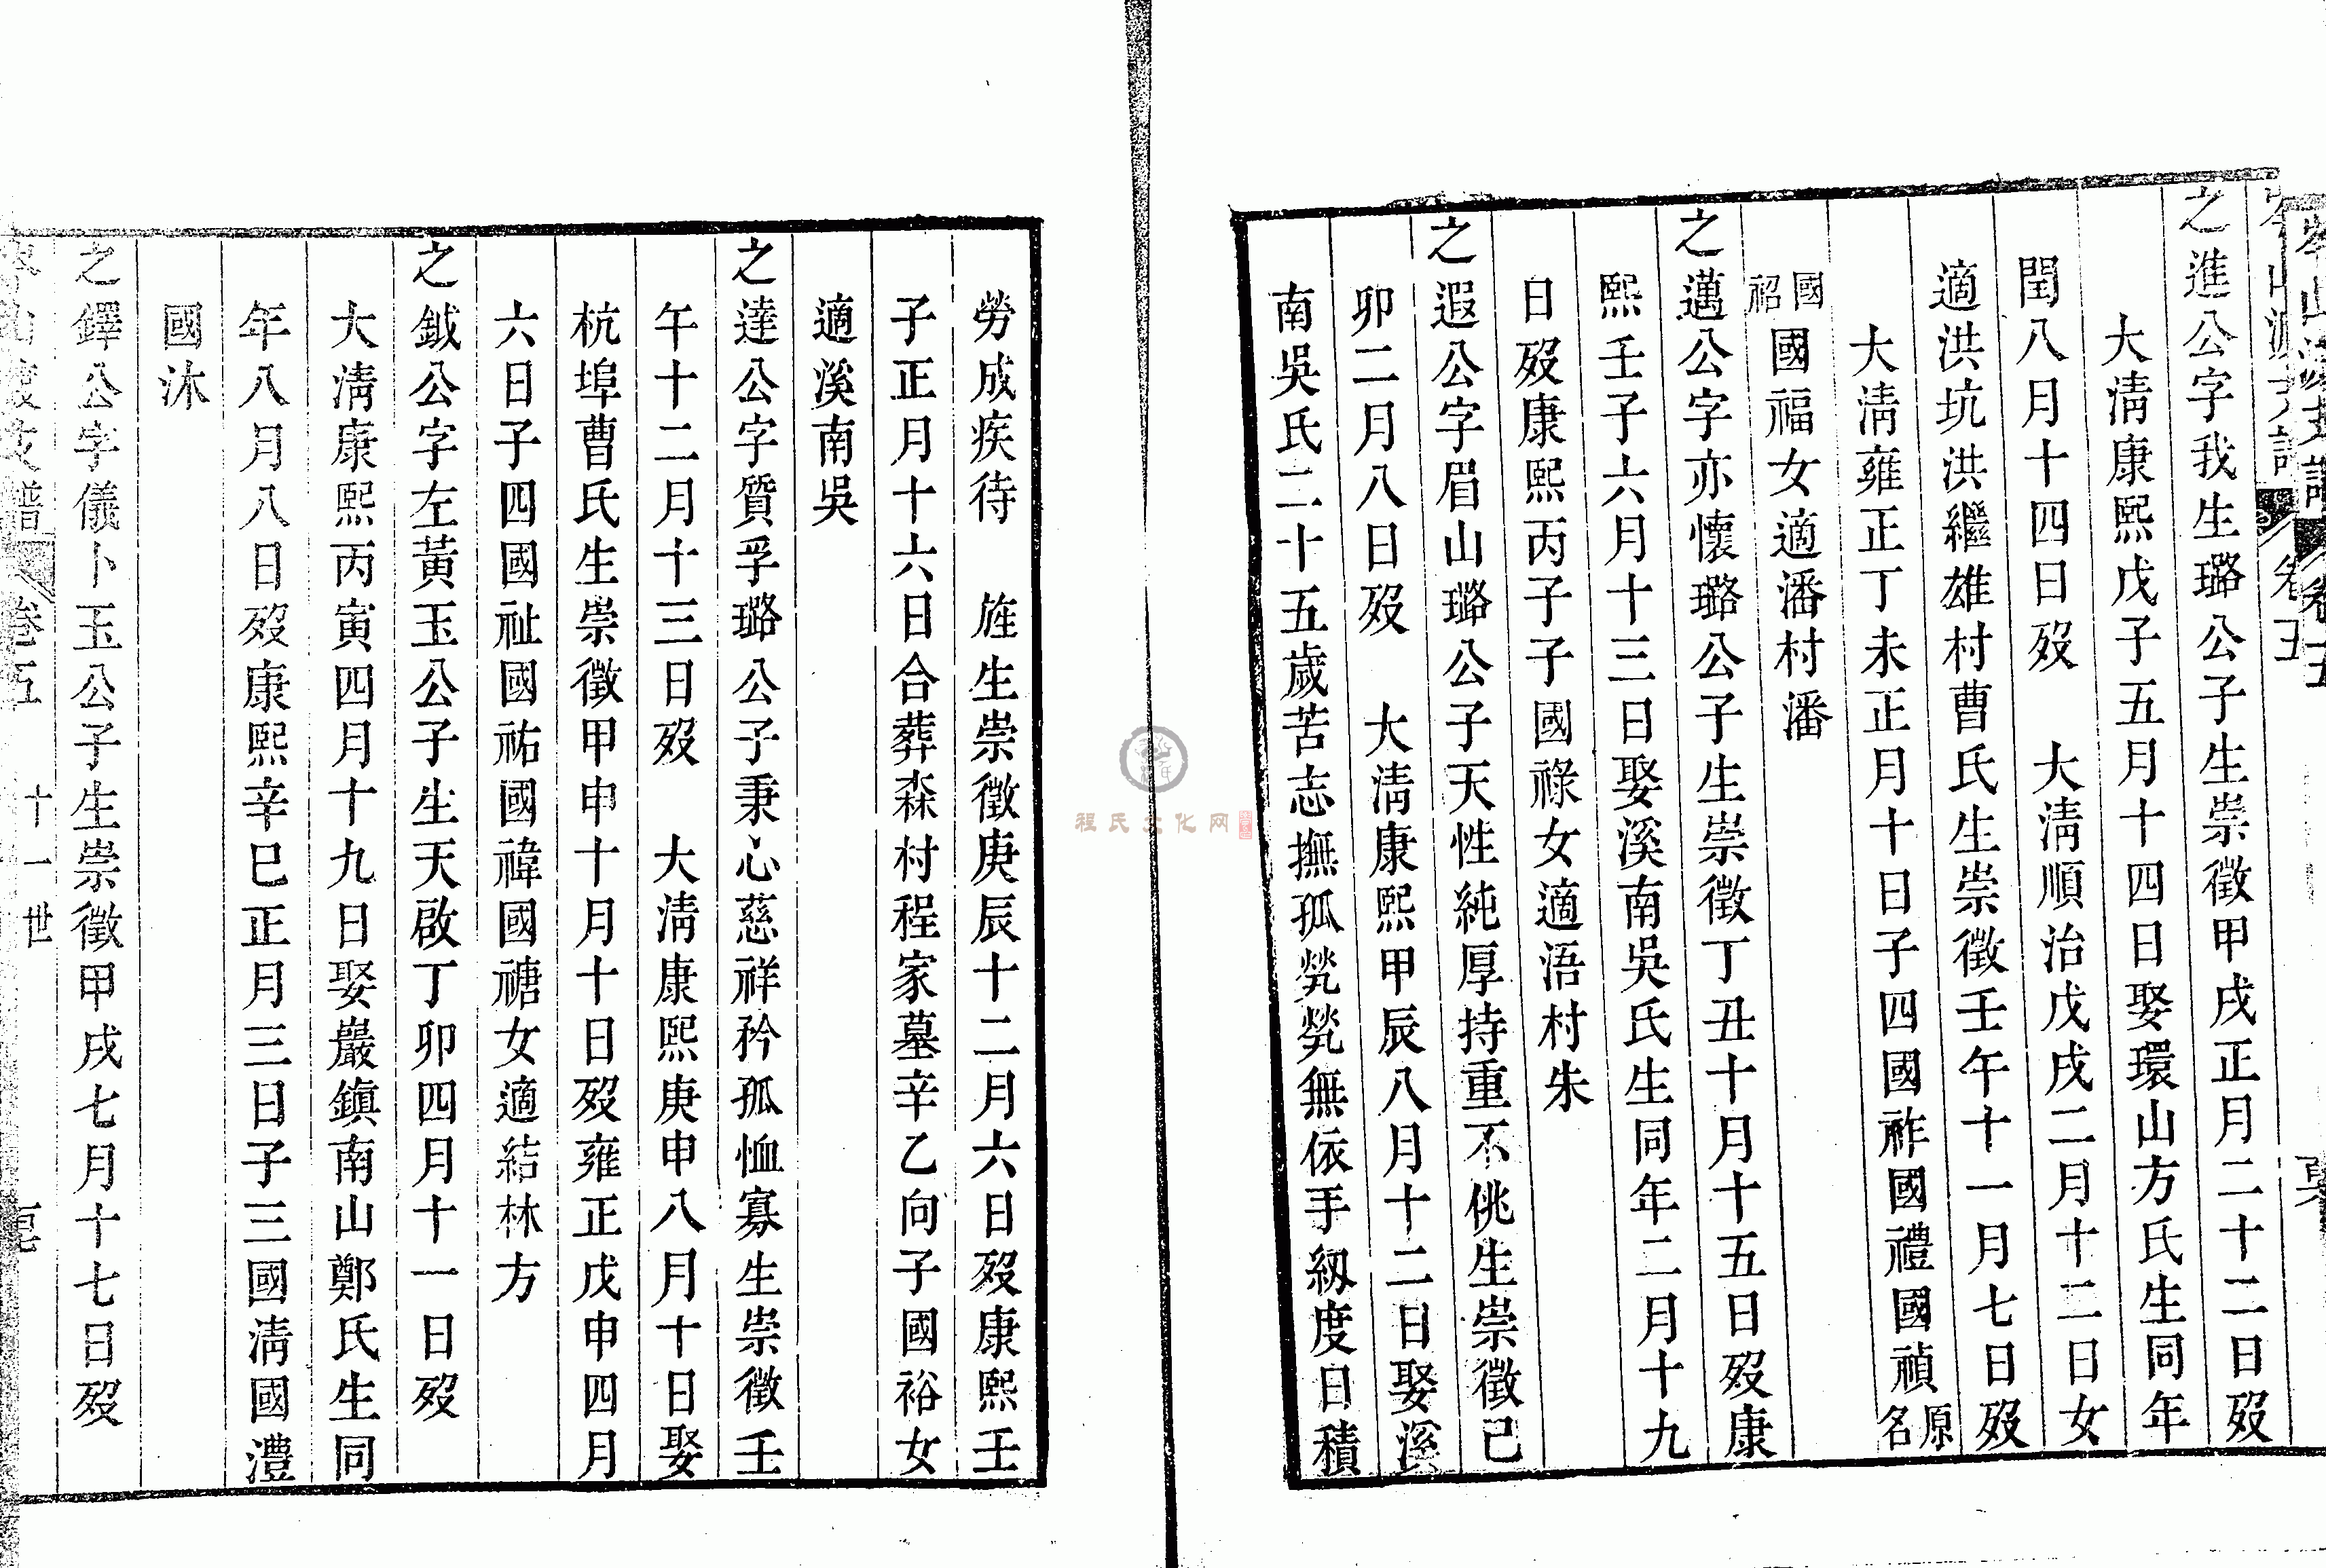 岑山渡支譜 卷五
之進公字我生璐公子生崇徵甲戌正月二十二日歿
大清康熙戊子五月十四日娶環山方氏生同年
閏八月十四日歿 大清順治戊戌二月十二日女
適洪坑洪繼雄村曹氏生崇徵壬午十一月七日歿
大清雍正丁未正月十日子四國祚國禮國禎原名
國祒國福女適潘村潘
之邁公字亦懷璐公子生崇徵丁丑十月十五日歿康
熙壬子六月十三日娶溪南吳氏生同年二月十九
日歿康熙丙子子國祿女適浯村朱
之遐公字眉山璐公子天性純厚持重不佻生崇徵己
卯二月八日歿 大清康熙甲辰八月十二日娶溪
南吳氏二十五歲苦志撫孤煢煢無依手紉度日積
勞成疾待 旌生崇徵庚辰十二月六日歿康熙壬
子正月十六日合葬森村程家墓辛乙向子國裕女
適溪南吳
之達公字質孚璐公子秉心慈祥矜孤恤寡生崇徵壬
午十二月十三日歿 大清康熙庚申八月十日娶
杭埠曹氏生崇徵甲申十月十日歿雍正戊申四月
六日子四國祉國祐國禕國禟女適結林方
之鉞公字左黃玉公子生天啟丁卯四月十一日歿
大清康熙丙寅四月十九日娶巖鎮南山鄭氏生同
年八月八日歿康熙辛巳正月三日子三國淸國灃
國沐
之鐸公字儀卜玉公子生崇徵甲戌七月十七日歿
岑山渡支譜 卷五 十一世